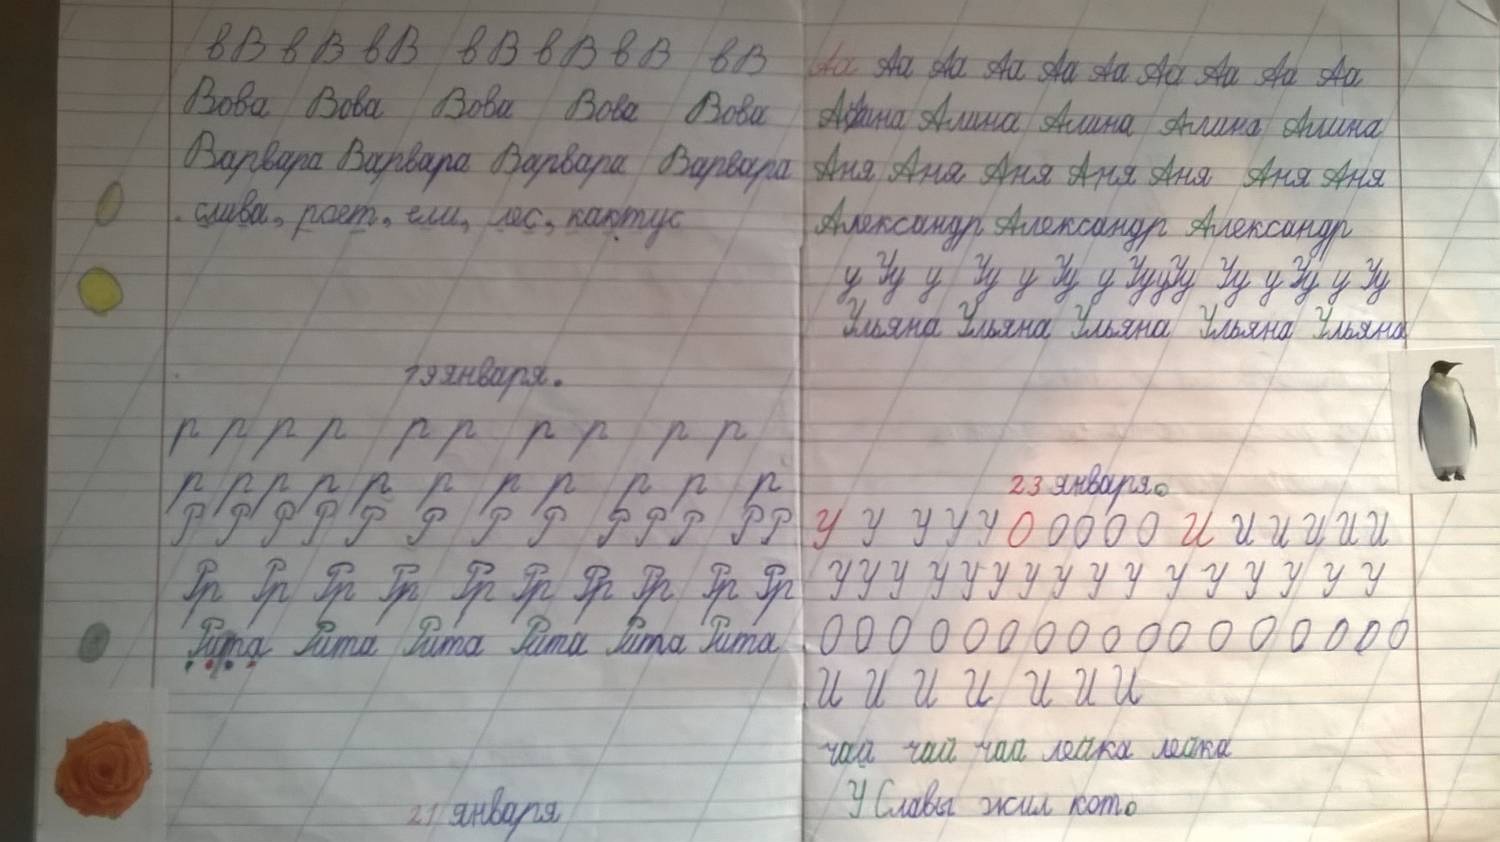 вВ вВ вВ вВ вВ вВ вВ
Вова Вова Вова Вова Вова
Варвара Варвара Варвара Варвара
слива, роет, ели, лес, кактус
19 января.
р р р р р р р р р р
р р р р р р р р р р р
Р Р Р Р Р Р Р Р Р Р Р Р Р
Рр Рр Рр Рр Рр Рр Рр Рр Рр Рр
Рита Рита Рита Рита Рита Рита
21 января
Аа Аа Аа Аа Аа Аа Аа Аа Аа Аа
Алина Алина Алина Алина Алина
Аня Аня Аня Аня Аня Аня Аня
Александр Александр Александр
у Уу у Уу у Уу у Уу у Уу Уу у Уу у Уу
Ульяна Ульяна Ульяна Ульяна Ульяна
23 января.
У У У У У О О О О О И И И И И И
У У У У У У У У У У У У У У У У
О О О О О О О О О О О О О О О О О
И И И И И И И
чай чай чай лейка лейка
У Славы жил кот.